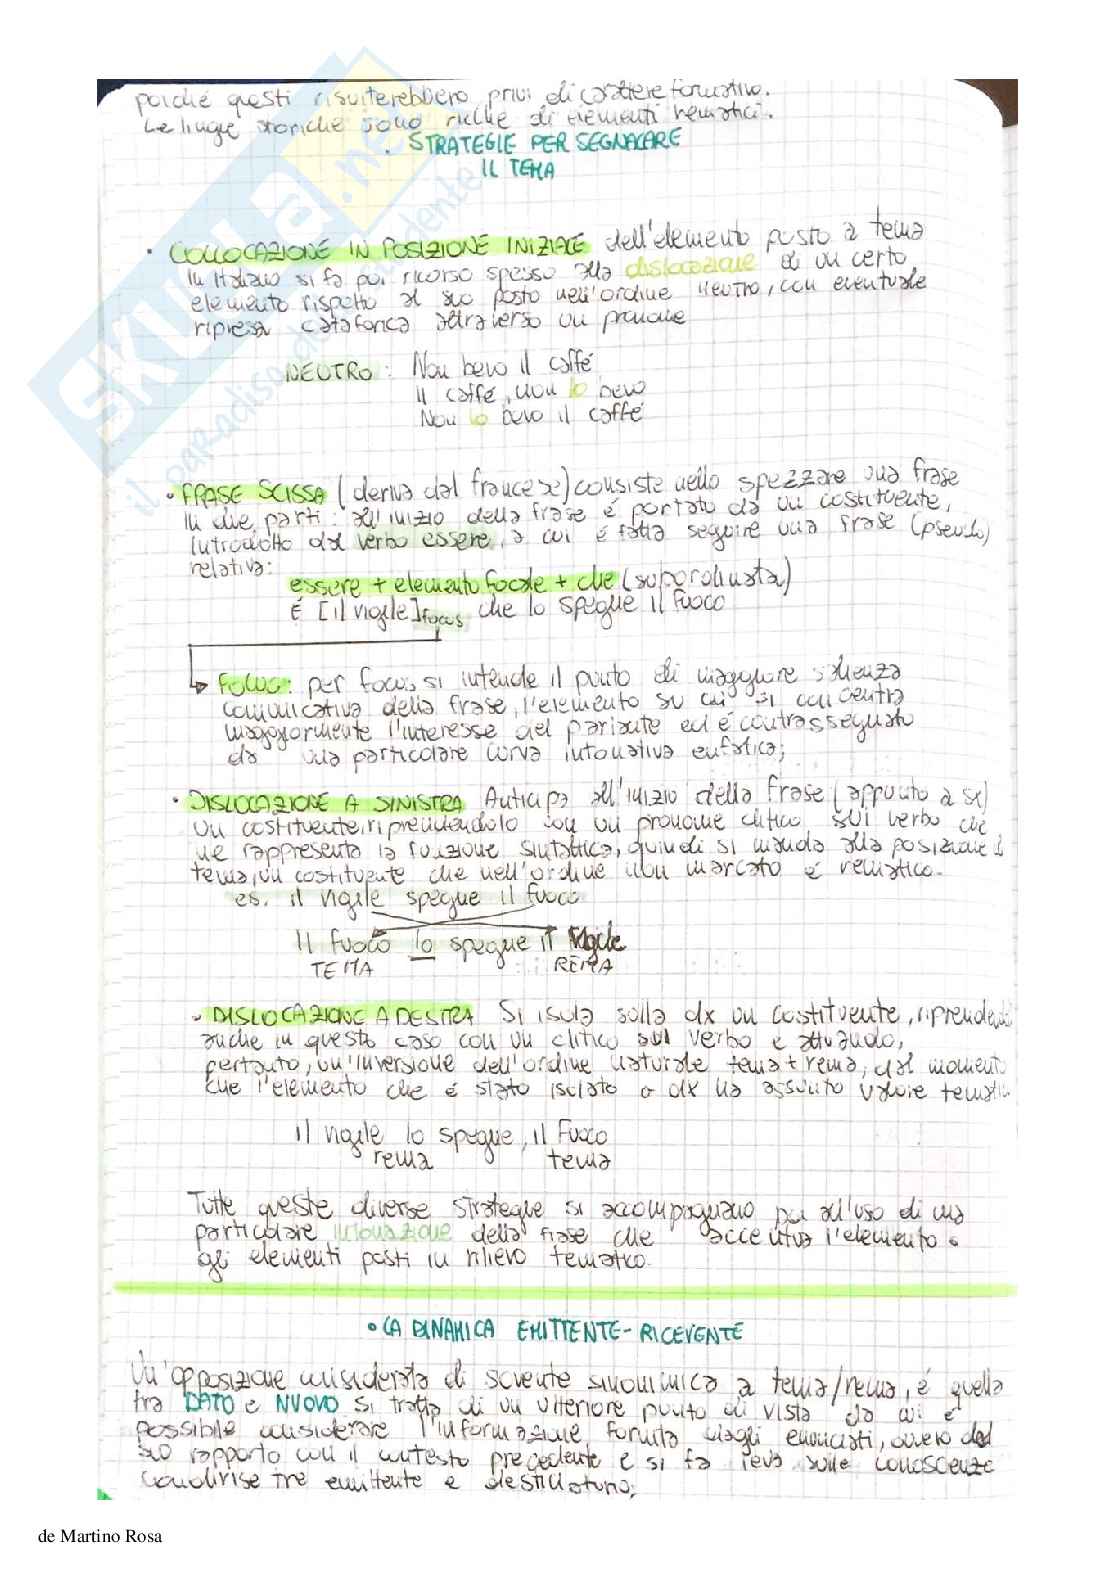 poiché questi risulterebbero privi di carattere formativo.
Le lingue storiche sono ricche di elementi rematici.
STRATEGIE PER SEGNACARE
IL TEMA
• COLLOCAZIONE IN POSIZIONE INIZIALE dell'elemento posto a tema
In Italiano si fa poi ricorso spesso alla dislocazione di un certo
elemento rispetto al suo posto nell'ordine neutro, con eventuale
ripresa cataforica attraverso un pronome
NEUTRO: Non bevo il caffé
Il caffé, non lo bevo
Non lo bevo il caffé
• FRASE SCISSA (deriva dal francese) consiste nello spezzare una frase
in due parti: all'inizio della frase é portato da un costituente,
introdotto dal verbo essere, a cui é fatta seguire una frase (pseudo)
relativa:
essere + elemento focale + che (supordinata)
É [il vigile]focus che lo spegne il fuoco
Focus: per focus si intende il punto di maggiore salienza
comunicativa della frase, l'elemento su cui si concentra
maggiormente l'interesse del parlante ed é contrassegnato
da una particolare curva intonativa enfatica;
• DISLOCAZIONE A SINISTRA Anticipa all'inizio della frase (appunto a sx)
un costituente, riprendendolo con un pronome clitico sul verbo che
ne rappresenta la funzione sintattica, quindi si manda alla posizione di
tema, un costituente che nell'ordine non marcato é rematico.
es. il vigile spegne il fuoco
Il fuoco lo spegne il vigile
TEMA REMA
• DISLOCAZIONE A DESTRA Si isola sulla dx un costituente, riprendendo
anche in questo caso con un clitico sul verbo e attuando,
pertanto, un'inversione dell'ordine naturale tema + rema, dal momento
che l'elemento che é stato isolato a dx ha assunto valore
il vigile lo spegne, il fuoco
rema tema
Tutte queste diverse strategie si accompagnano poi all'uso di una
particolare intonazione della frase che accentua l'elemento o
gli elementi posti in rilievo tematico.
• LA DINAMICA EMITTENTE-RICEVENTE
Un'opposizione considerata di sovente sinonimica a tema/rema, é quella
tra DATO e NUOVO si tratta di un ulteriore punto di vista da cui é
possibile considerare l'informazione fornita dagli enunciati, ovvero dal
suo rapporto con il contesto precedente e si fa leva sulle conoscenze
condivise tre emittente e destinatario;
SKUOLA.net
il paradiso dello studente
de Martino Rosa